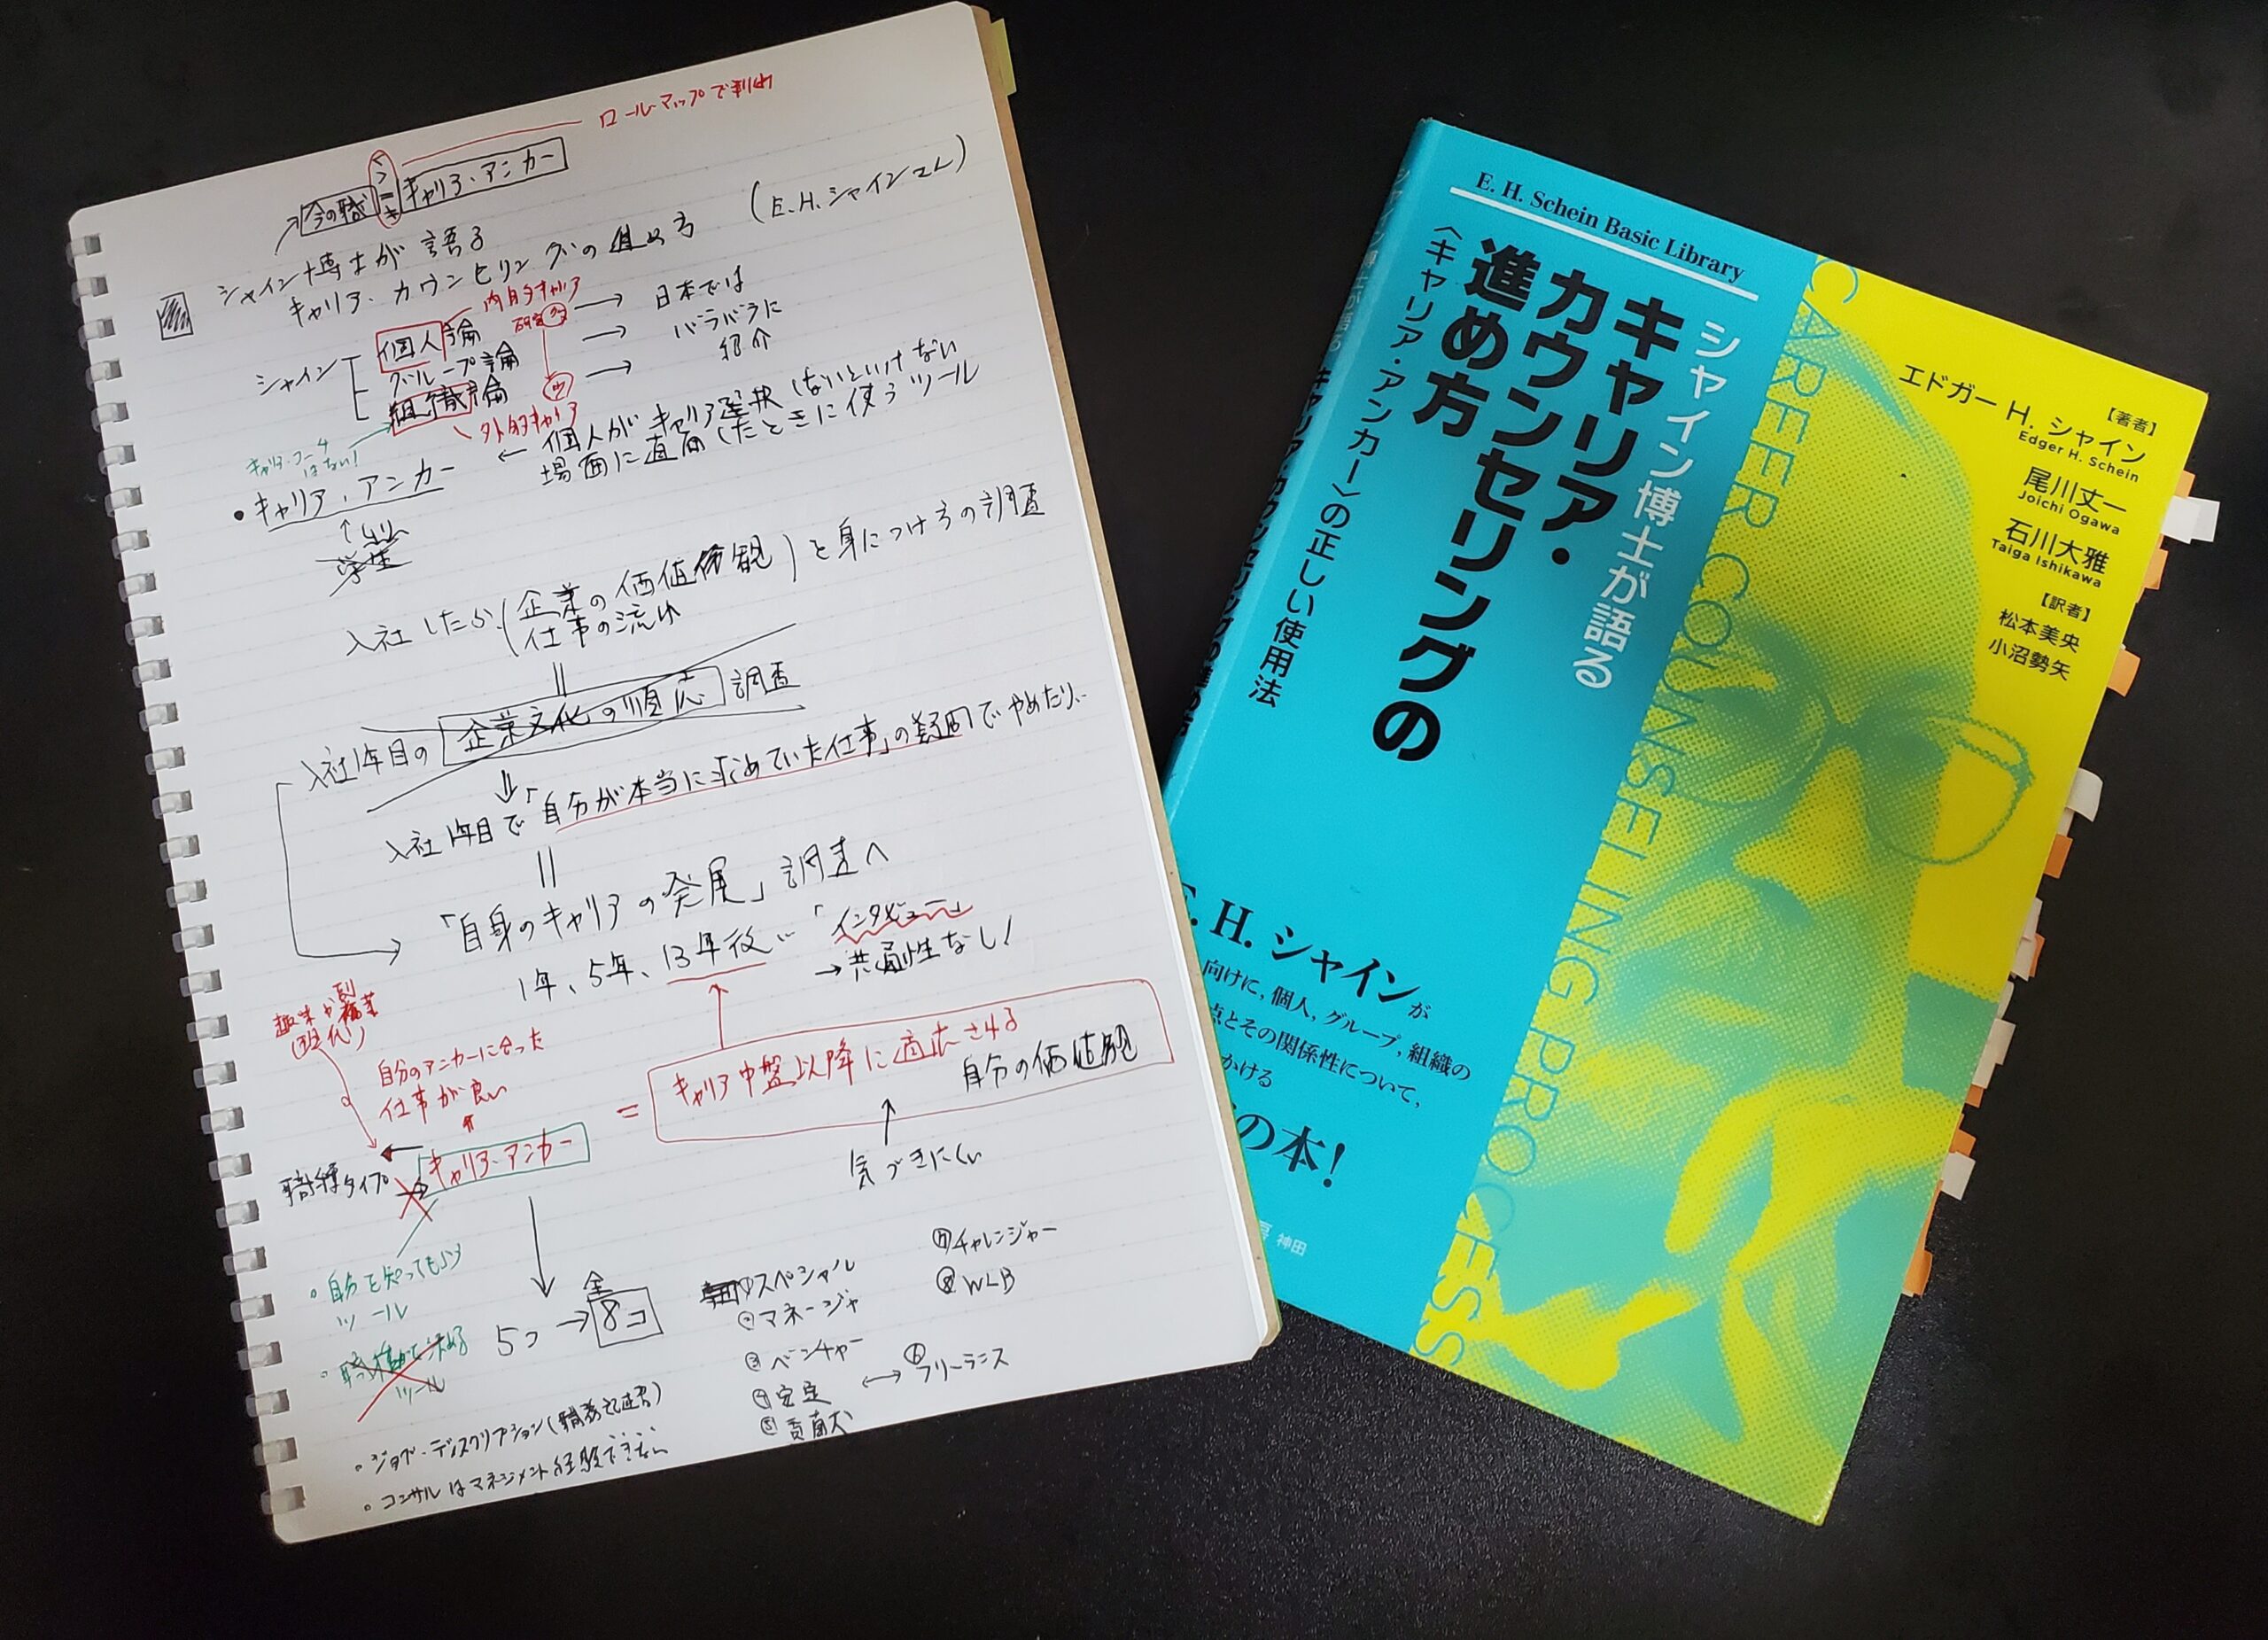 ロールマップで判断
今の職 キャリア・アンカー
シャイン博士が語る
キャリア・カウンセリングの進め方 (E.H.シャインコレ)
シャイン
個人論 内的キャリア
グループ論
組織論
外的キャリア
日本では
バラバラに
紹介
キャリアコーチ
はない!
・キャリア・アンカー
← 個人がキャリア選択しないといけない
場面に直面したときに使うツール
学生
入社したら(企業の価値観)を身につけるの調査
仕事の流れ
||
入社1年目の 企業文化の順応 調査
⇓
入社1年目で「自分が本当に求めていた仕事」の疑問でやめたり、
||
「自身のキャリアの発展」調査へ
1年、5年、13年後に「インタビュー」
→共通性なし!
趣味か副業
自分のアンカーに合った
仕事が良い
キャリア中盤以降に適応される
自分の価値観
気づきにくい
職種タイプ
キャリア・アンカー
・自分を知ってもらう
ツール
・職種を決める
ツール
5コ → 全8コ
①スペシャル
②マネージャ
③ベンチャー
④安定 ↔ ⑥フリーランス
⑤貢献
⑦チャレンジャー
⑧WLB
・ジョブ・ディスクリプション(職務記述書)
・コンサルはマネジメント経験できない
E. H. Schein Basic Library
シャイン博士が語る
キャリア・
カウンセリングの
進め方
〈キャリア・アンカー〉の正しい使用法
CAREER COUNSELING PROCESS
【著者】
エドガー H. シャイン
Edger H. Schein
尾川丈一
Joichi Ogawa
石川大雅
Taiga Ishikawa
【訳者】
松本美央
小沼勢矢
E. H. シャインが
向けに, 個人, グループ, 組織の
点とその関係性について,
かける
の本!
神田